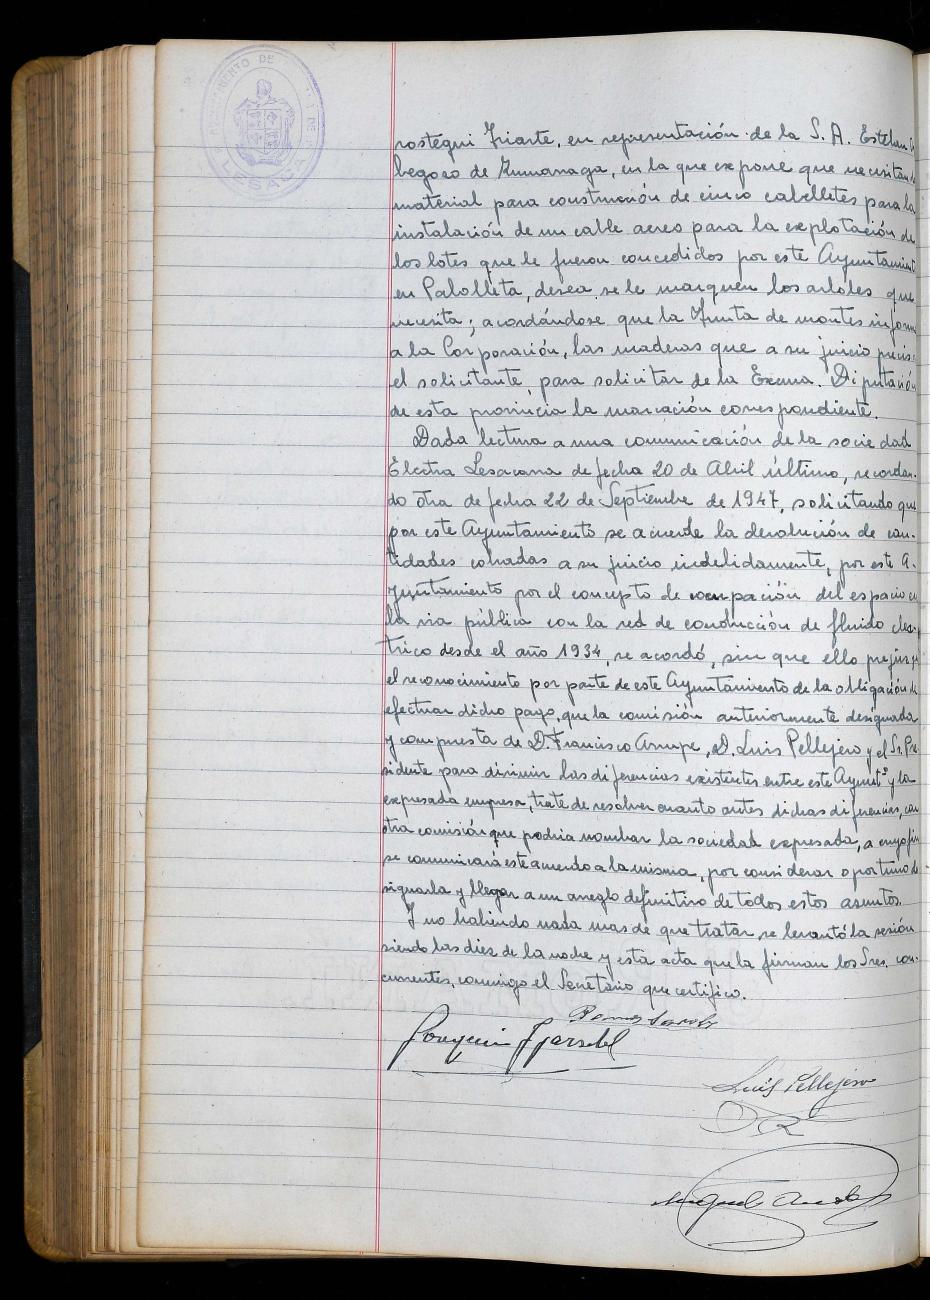 AYUNTAMIENTO DE
LESACA
rostegui Iriarte, en representación de la S. A. Esteban
de Zumarraga, en la que expone que necesitando
material para construcción de cinco caballetes para la
instalación de un cable aereo para la explotación de
los lotes que le fueron concedidos por este Ayuntamient
en Palolleta, desea se le marquen los arboles que
necesita; acordándose que la Junta de montes inform
a la Corporación, las maderas que a su juicio precis
el solicitante para solicitar de la Excma. Diputación
de esta provincia la marcación correspondiente.
Dada lectura a una comunicación de la sociedad
Electra Lesacana de fecha 20 de Abril último, recordan-
do otra de fecha 22 de Septiembre de 1947, solicitando que
por este Ayuntamiento se acuerde la devolución de can-
tidades cobradas a su juicio indebidamente, por este A-
yuntamiento por el concepto de ocupación del espacio en
la via pública con la red de conducción de fluido eléc-
trico desde el año 1934, se acordó, sin que ello prejuzgue
el reconocimiento por parte de este Ayuntamiento de la obligación de
efectuar dicho pago, que la comisión anteriormente designada
y compuesta de D. Francisco Arrupe, D. Luis Pellejero y el Sr. Pre
sidente para dirimir las diferencias existentes entre este Ayuntº y la
expresada empresa, trate de resolver cuanto antes dichas diferencias, con
otra comisión que podria nombrar la sociedad expresada, a cuyo fin
se comunicará este acuerdo a la misma, por considerar oportuno de
signarla y llegar a un arreglo definitivo de todos estos asuntos.
Y no habiendo nada mas de que tratar, se levantó la sesión
siendo las diez de la noche y esta acta que la firman los Sres. con-
currentes, conmigo el Secretario que certifico.
Joaquin
Luis Pellejero
Miguel